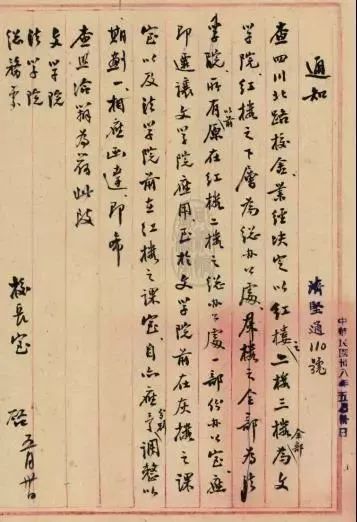 通知
濟堅通110號
中華民國卅八年五月卅日
查四川北路校舍業經決定以紅樓之二樓三樓全部為文
學院紅樓之下層為總办公處灰樓之全部為法
學院所有以前原在紅樓二樓之總办公處一部份办公室應
即選讓文學院應用至於文學院前在灰樓之課
室以及法學院前在紅樓之課室自亦應分别予調整以
期劃一相應函達即希
查照洽辦為荷此致
文學院
法學院
總務處
校長室 啟 五月卅日